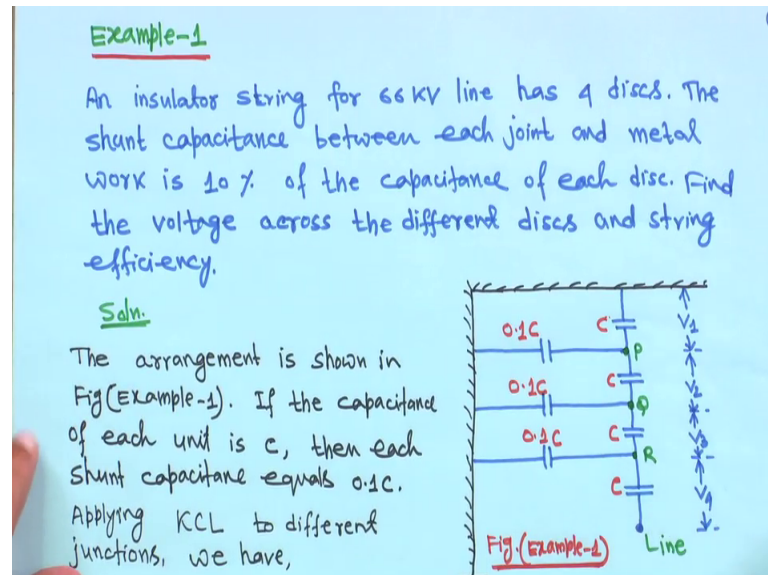 Example-1
An insulator string for 66 KV line has 4 discs. The
shunt capacitance between each joint and metal
work is 10 % of the capacitance of each disc. Find
the voltage across the different discs and string
efficiency.
Soln.
The arrangement is shown in
Fig(Example-1). If the capacitance
of each unit is c, then each
shunt capacitane equals 0.1C.
Applying KCL to different
junctions, we have,
0.1C
C
V1
P
0.1C
C
V2
Q
0.1C
C
V3
R
C
V4
Fig.(Example-1)
Line